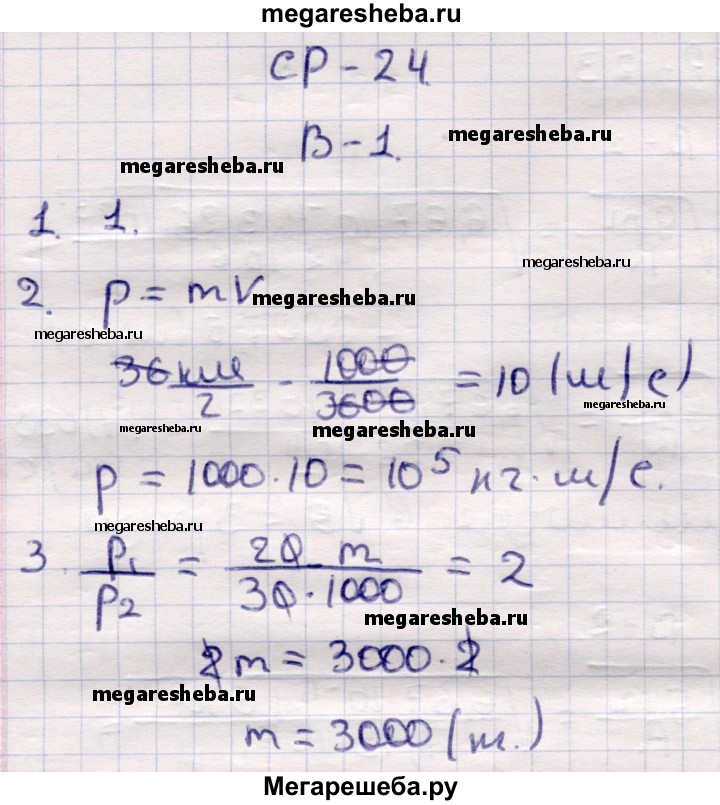 megaresheba.ru
СР-24
В-1. megaresheba.ru
megaresheba.ru
1. 1.
megaresheba.ru
2. p = mV megaresheba.ru
megaresheba.ru
36 км/2 - 1000/3600 = 10 (м/с)
megaresheba.ru
megaresheba.ru
megaresheba.ru
p = 1000·10 = 10^5 кг·м/с.
megaresheba.ru
3. p1/p2 = 20 m/30·1000 = 2
megaresheba.ru
2m = 3000·2
megaresheba.ru
m = 3000 (т.)
Мегарешеба.ру